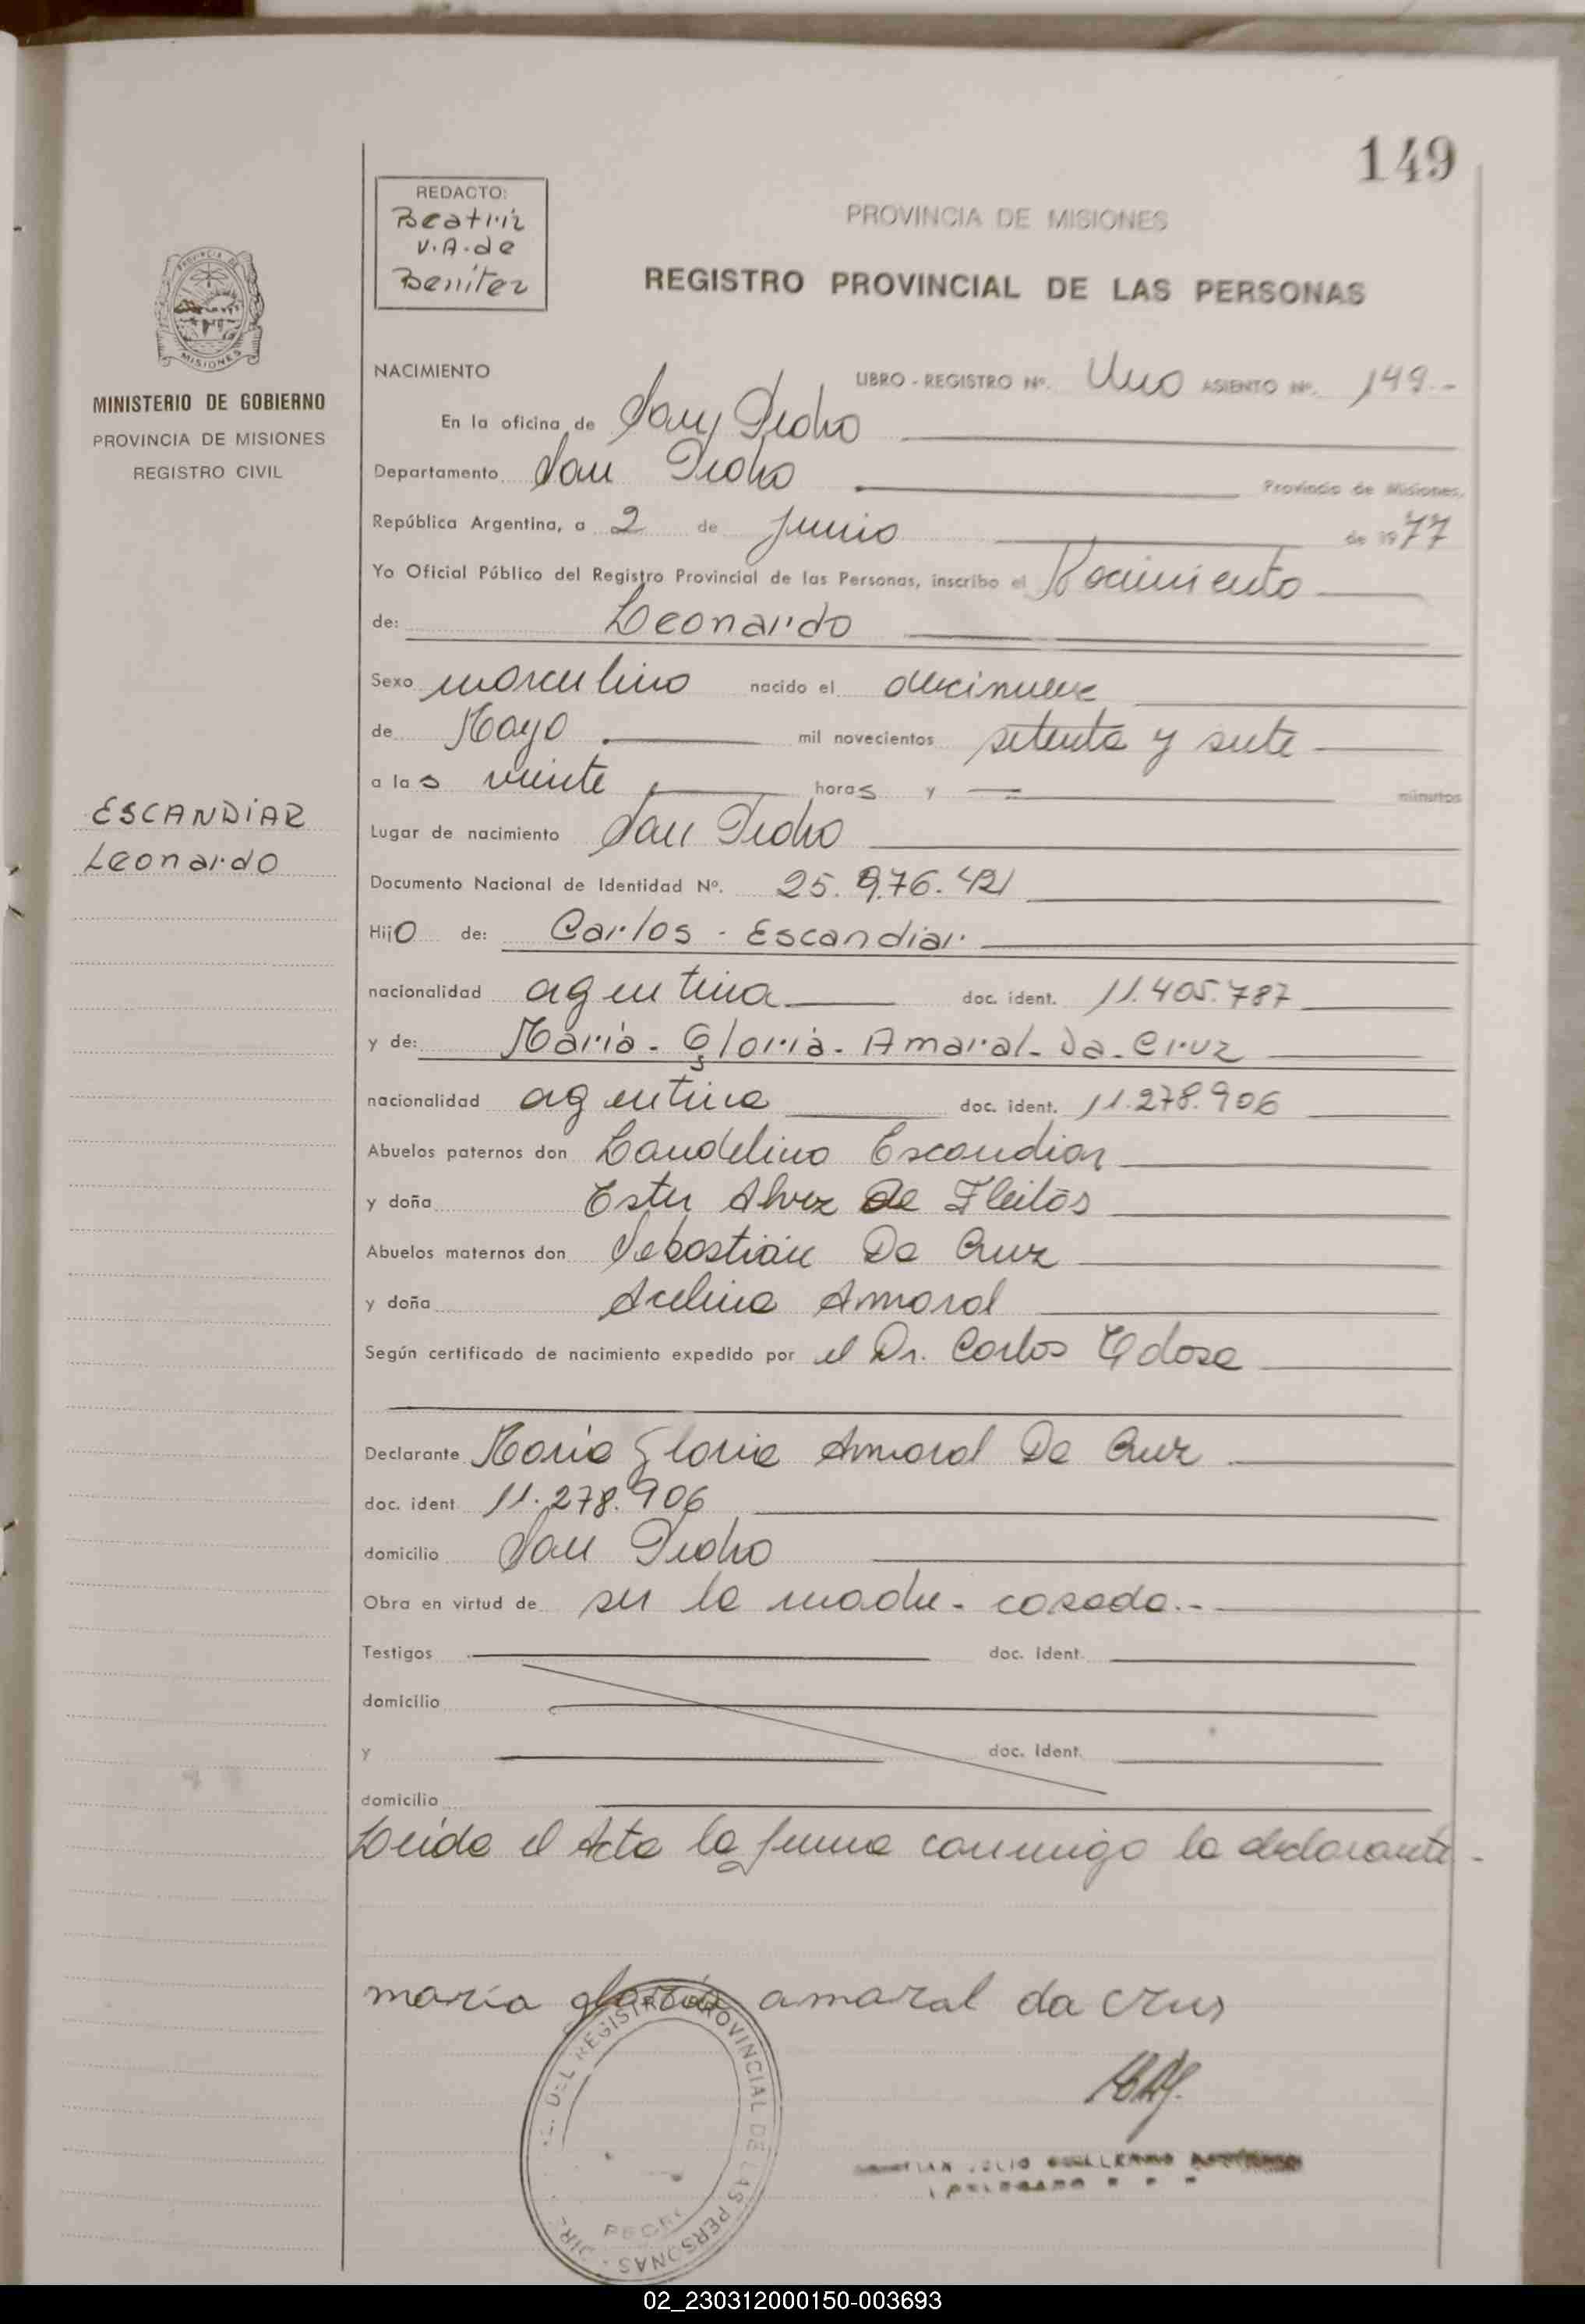 149
REDACTO:
Beatriz
V.A. de
Benítez
PROVINCIA DE MISIONES
REGISTRO PROVINCIAL DE LAS PERSONAS
PROVINCIA DE
MISIONES
MINISTERIO DE GOBIERNO
PROVINCIA DE MISIONES
REGISTRO CIVIL
ESCANDIAR
Leonardo
NACIMIENTO LIBRO - REGISTRO Nº. Uno ASIENTO Nº. 149.-
En la oficina de San Pedro
Departamento San Pedro Provincia de Misiones,
República Argentina, a 2 de Junio de 1977
Yo Oficial Público del Registro Provincial de las Personas, inscribo el Nacimiento
de: Leonardo
Sexo masculino nacido el diecinueve
de Mayo mil novecientos setenta y siete
a las veinte horas y minutos
Lugar de nacimiento San Pedro
Documento Nacional de Identidad Nº. 25.976.421
Hijo de: Carlos - Escandiar
nacionalidad argentina doc. ident. 11.405.787
y de: María - Gloria - Amaral - Da - Cruz
nacionalidad argentina doc. ident. 11.278.906
Abuelos paternos don Candelino Escandiar
y doña Ester Alvez de Fleitas
Abuelos maternos don Sebastián Da Cruz
y doña Avelina Amaral
Según certificado de nacimiento expedido por el Dr. Carlos
Declarante María Gloria Amaral Da Cruz
doc. ident. 11.278.906
domicilio San Pedro
Obra en virtud de ser la madre - casada.-
Testigos doc. ident.
domicilio
y doc. ident.
domicilio
Leída el Acta la firma conmigo la declarante.-
maria gloria amaral da crus
DEL REGISTRO PROVINCIAL DE LAS PERSONAS
JULIO GUILLERMO
DELEGADO
02_230312000150-003693